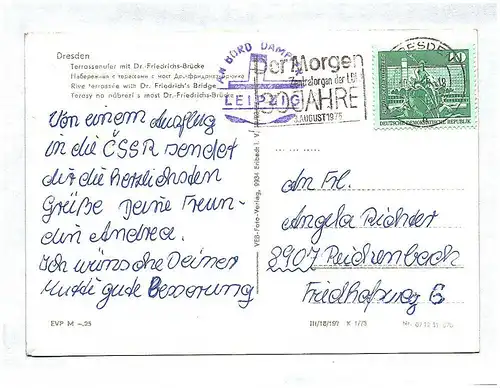 Dresden
Terrassenufer mit Dr.-Friedrichs-Brücke
Rive terrassée with Dr. Friedrich's Bridge
Terasy na nábřeží s most Dr.-Friedrichs-Brücke
Von einem Ausflug
in die ČSSR sendet
dir die herzlichsten
Grüße Deine Freun-
din Andrea.
Ich wünsche Deiner
Mutti gute Besserung
EVP M –.25
VEB-Foto-Verlag, 9934 Erlbach i. V.
AN BORD DAMPFER
LEIPZIG
Der Morgen
Zentralorgan der LDPD
30 JAHRE
3. AUGUST 1975
DRESDEN
10
DEUTSCHE DEMOKRATISCHE REPUBLIK
An Frl.
Angela Richter
8907 Reichenbach
Friedhofsweg 6
III/18/197